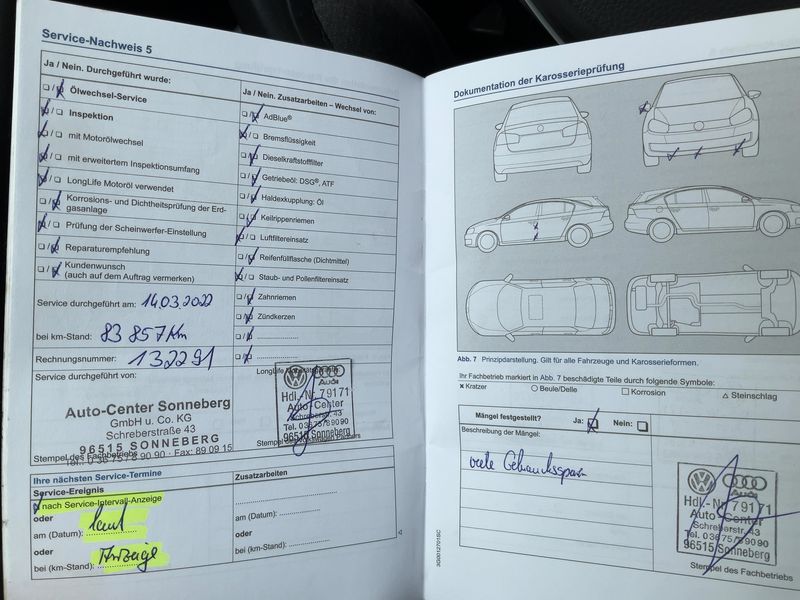 Service-Nachweis 5
Ja / Nein. Durchgeführt wurde:
Ölwechsel-Service
Inspektion
mit Motorölwechsel
mit erweitertem Inspektionsumfang
LongLife Motoröl verwendet
Korrosions- und Dichtheitsprüfung der Erd-
gasanlage
Prüfung der Scheinwerfer-Einstellung
Reparaturempfehlung
Kundenwunsch
(auch auf dem Auftrag vermerken)
Ja / Nein. Zusatzarbeiten – Wechsel von:
AdBlue®
Bremsflüssigkeit
Dieselkraftstofffilter
Getriebeöl: DSG®, ATF
Haldexkupplung: Öl
Keilrippenriemen
Luftfiltereinsatz
Reifenfüllflasche (Dichtmittel)
Staub- und Pollenfiltereinsatz
Zahnriemen
Zündkerzen
Service durchgeführt am: 14.03.2022
bei km-Stand: 83 857 km
Rechnungsnummer: 132291
Service durchgeführt von:
Auto-Center Sonneberg
GmbH u. Co. KG
Schreberstraße 43
96515 SONNEBERG
Tel. 0 36 75 / 8 90 90 · Fax: 89 09 15
Stempel des Fachbetriebs
Audi
Hdl.-Nr. 79171
Auto-Center
Schreberstr. 43
Tel. 03675/89090
96515 Sonneberg
Ihre nächsten Service-Termine
Service-Ereignis
nach Service-Intervall-Anzeige
oder laut
am (Datum):
oder Anzeige
bei (km-Stand):
Zusatzarbeiten
am (Datum):
oder
bei (km-Stand):
Dokumentation der Karosserieprüfung
Abb. 7 Prinzipdarstellung. Gilt für alle Fahrzeuge und Karosserieformen.
Ihr Fachbetrieb markiert in Abb. 7 beschädigte Teile durch folgende Symbole:
× Kratzer ○ Beule/Delle □ Korrosion △ Steinschlag
Mängel festgestellt? Ja: Nein:
Beschreibung der Mängel:
viele Gebrauchsspuren
Audi
Hdl.-Nr. 79171
Auto-Center
Schreberstr. 43
Tel. 03675/89090
96515 Sonneberg
Stempel des Fachbetriebs
3G0012701SC